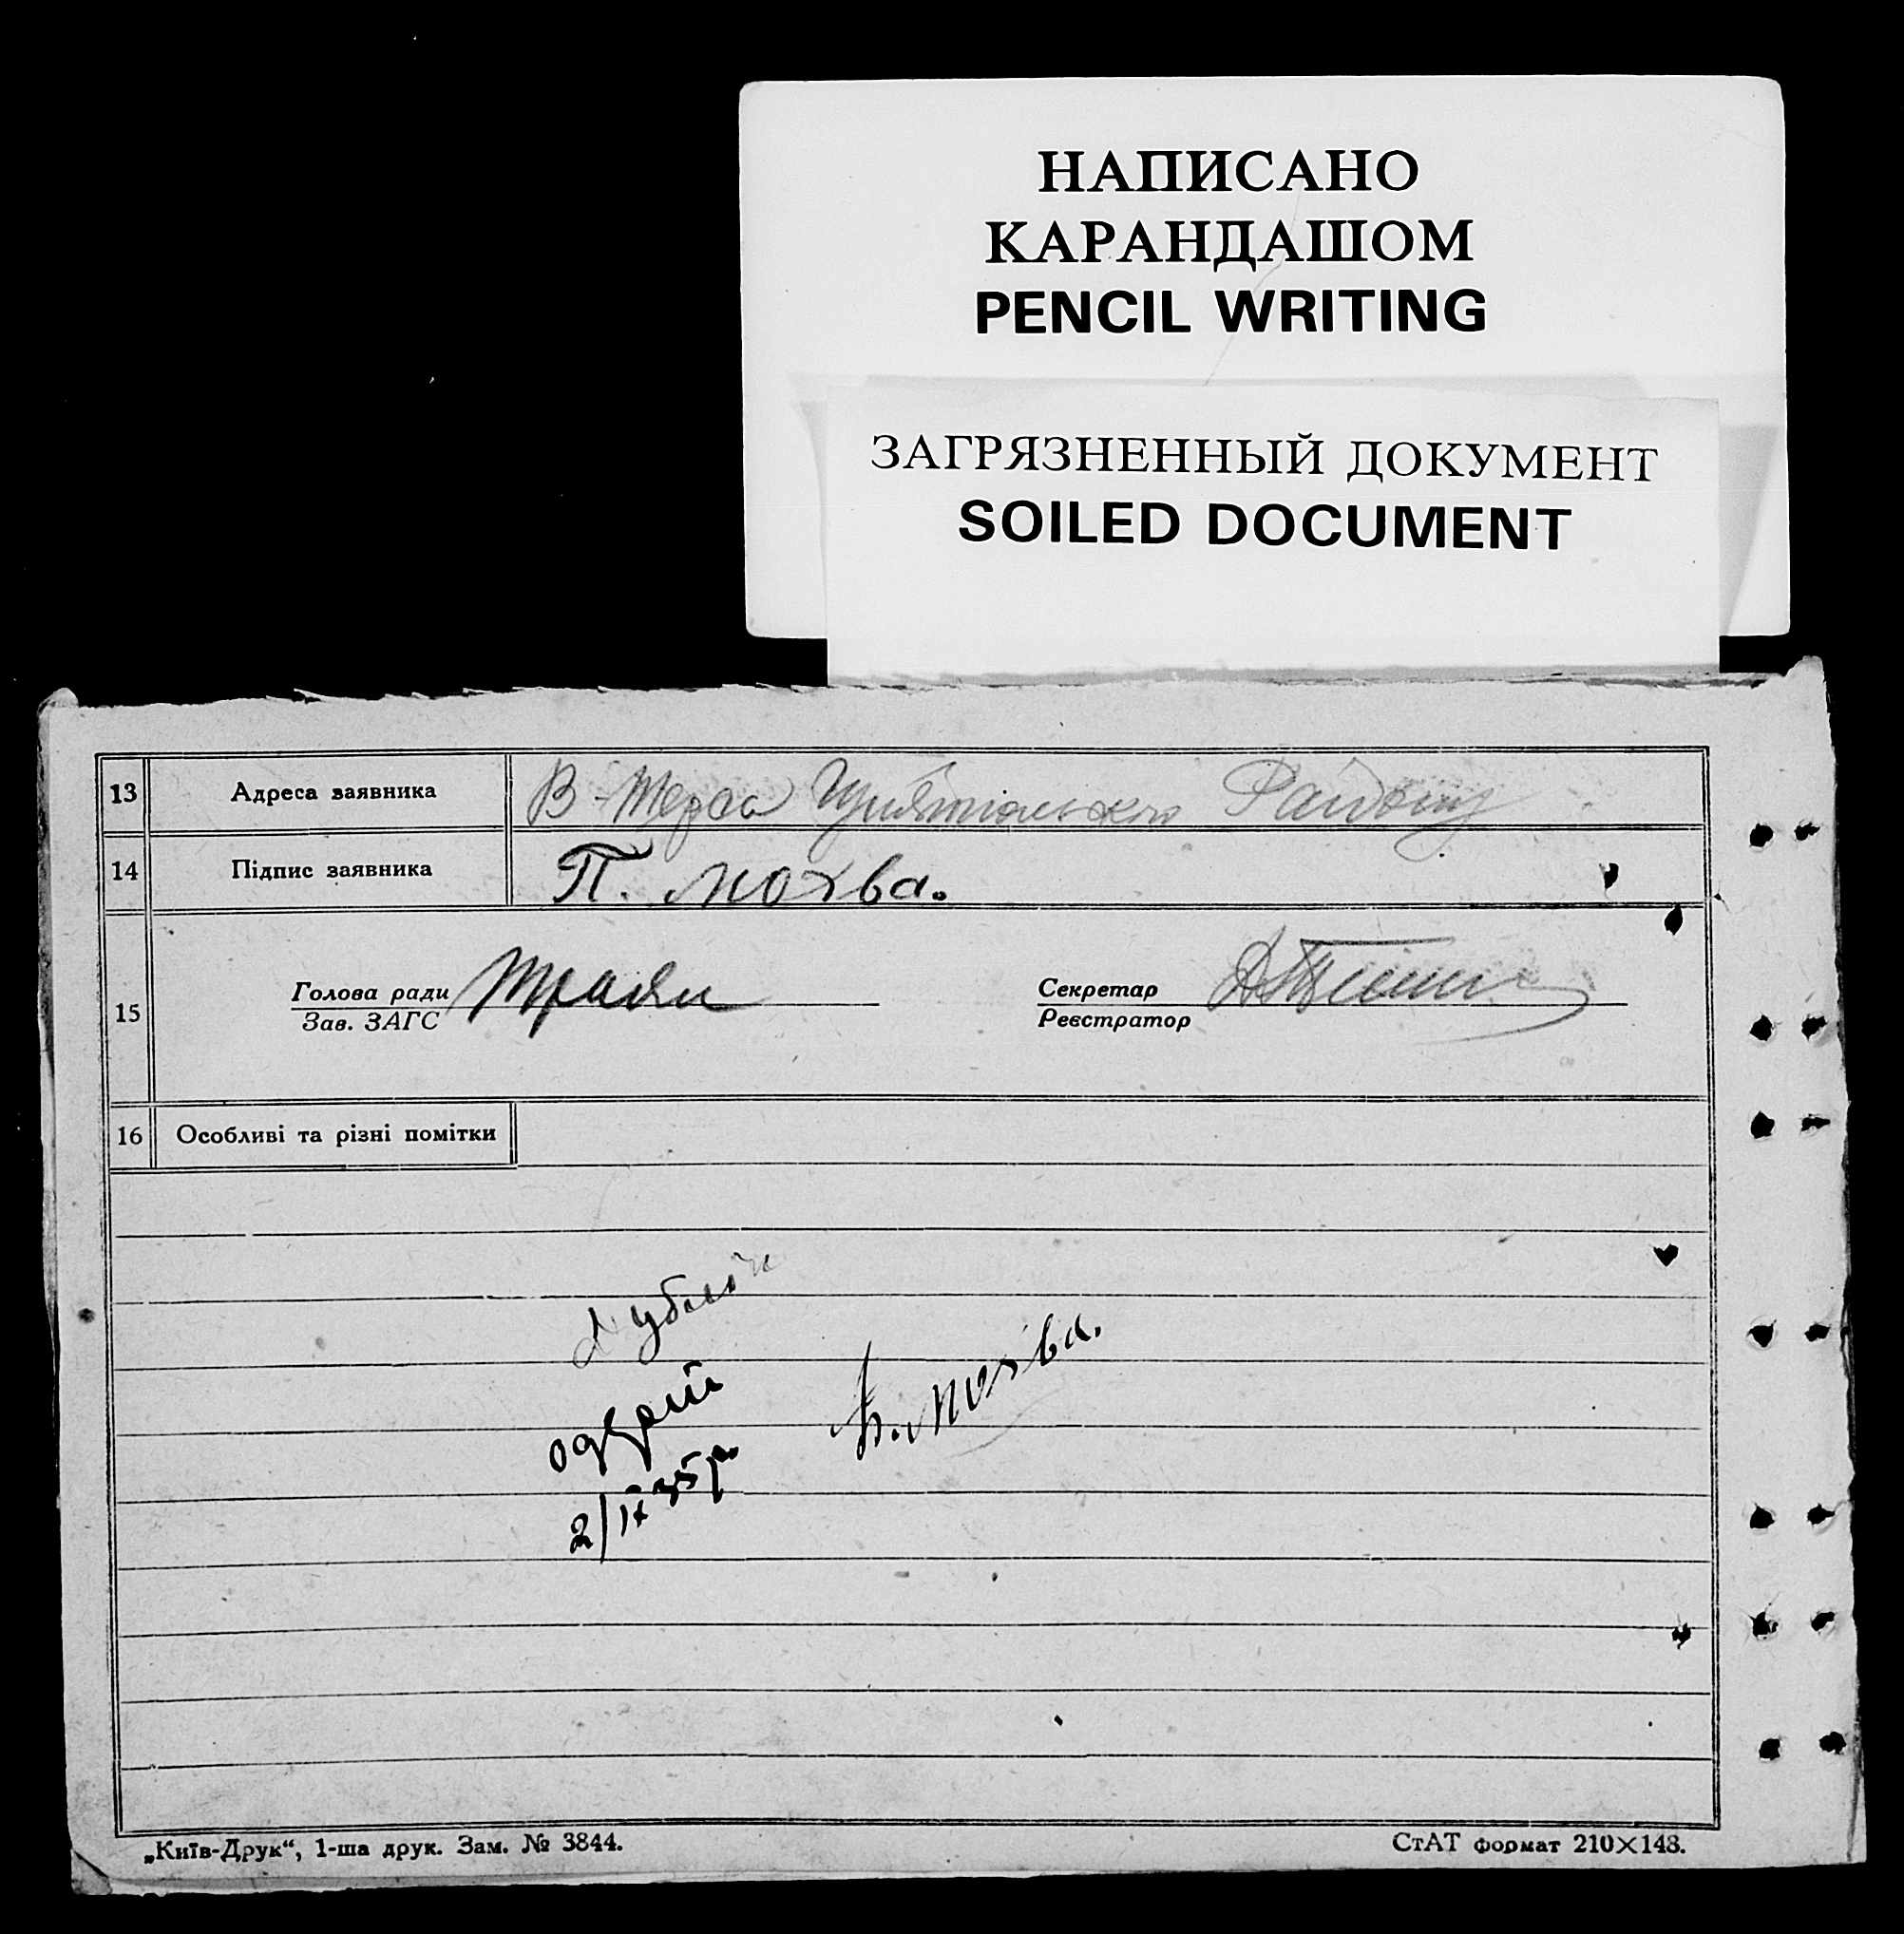 НАПИСАНО
КАРАНДАШОМ
PENCIL WRITING
ЗАГРЯЗНЕННЫЙ ДОКУМЕНТ
SOILED DOCUMENT
13 Адреса заявника В-Терса
14 Підпис заявника П. Мохва.
15 Голова ради Секретар
Зав. ЗАГС Реєстратор
16 Особливі та різні помітки
Дублік
П. Мохва.
2/IX 35 р
„Київ-Друк“, 1-ша друк. Зам. № 3844. СтАТ формат 210×148.